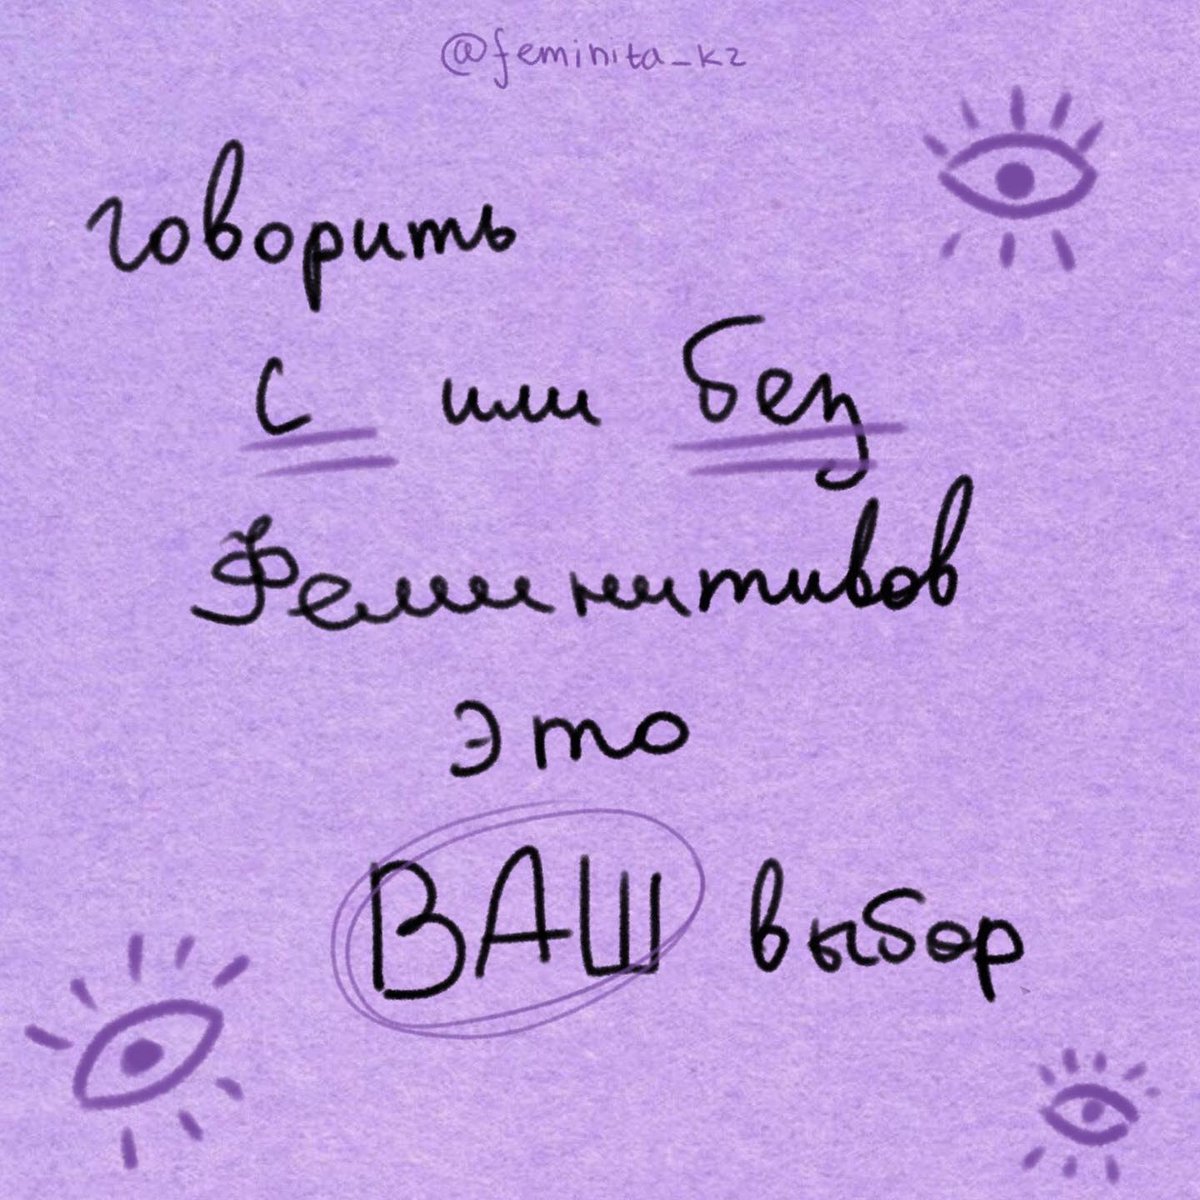 @feminita_kz
говорить
с или без
феминитивов
это
ВАШ выбор